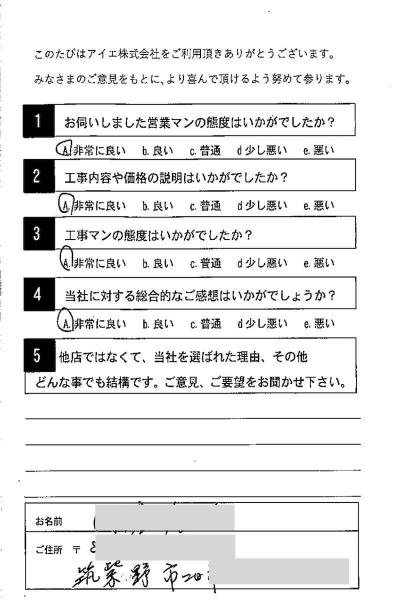 このたびはアイエ株式会社をご利用頂きありがとうございます。
みなさまのご意見をもとに、より喜んで頂けるよう努めて参ります。
1 お伺いしました営業マンの態度はいかがでしたか？
A.非常に良い b.良い c.普通 d少し悪い e.悪い
2 工事内容や価格の説明はいかがでしたか？
A.非常に良い b.良い c.普通 d少し悪い e.悪い
3 工事マンの態度はいかがでしたか？
A.非常に良い b.良い c.普通 d少し悪い e.悪い
4 当社に対する総合的なご感想はいかがでしょうか？
A.非常に良い b.良い c.普通 d少し悪い e.悪い
5 他店ではなくて、当社を選ばれた理由、その他
どんな事でも結構です。ご意見、ご要望をお聞かせ下さい。
お名前
ご住所 〒 8
筑紫野市